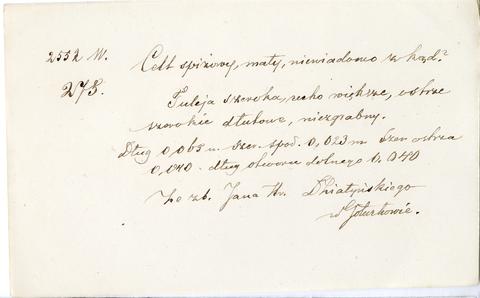 2552 W.
273.
Celt spiżowy, mały, niewiadomo z kąd?
Tuleja szeroka, ucho większe, ostrze
szerokie dłutowe, niezgrabny.
Dług 0,063 m. Szer. spod. 0,023 m Szer ostrza
0,040 - dług otworu dolnego 0.040
Ze zb. Jana Hr. Działyńskiego
w Gołuchowie.